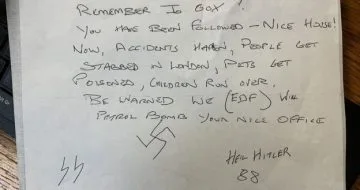 REMEMBER IS GOX?
YOU HAVE BEEN FOLLOWED – NICE HOUSE!
NOW, ACCIDENTS HAPEN, PEOPLE GET
STABBED IN LONDON, PETS GET
POISONED, CHILDREN RUN OVER.
BE WARNED WE (EDF) WILL
PETROL BOMB YOUR NICE OFFICE
HEIL HITLER
88